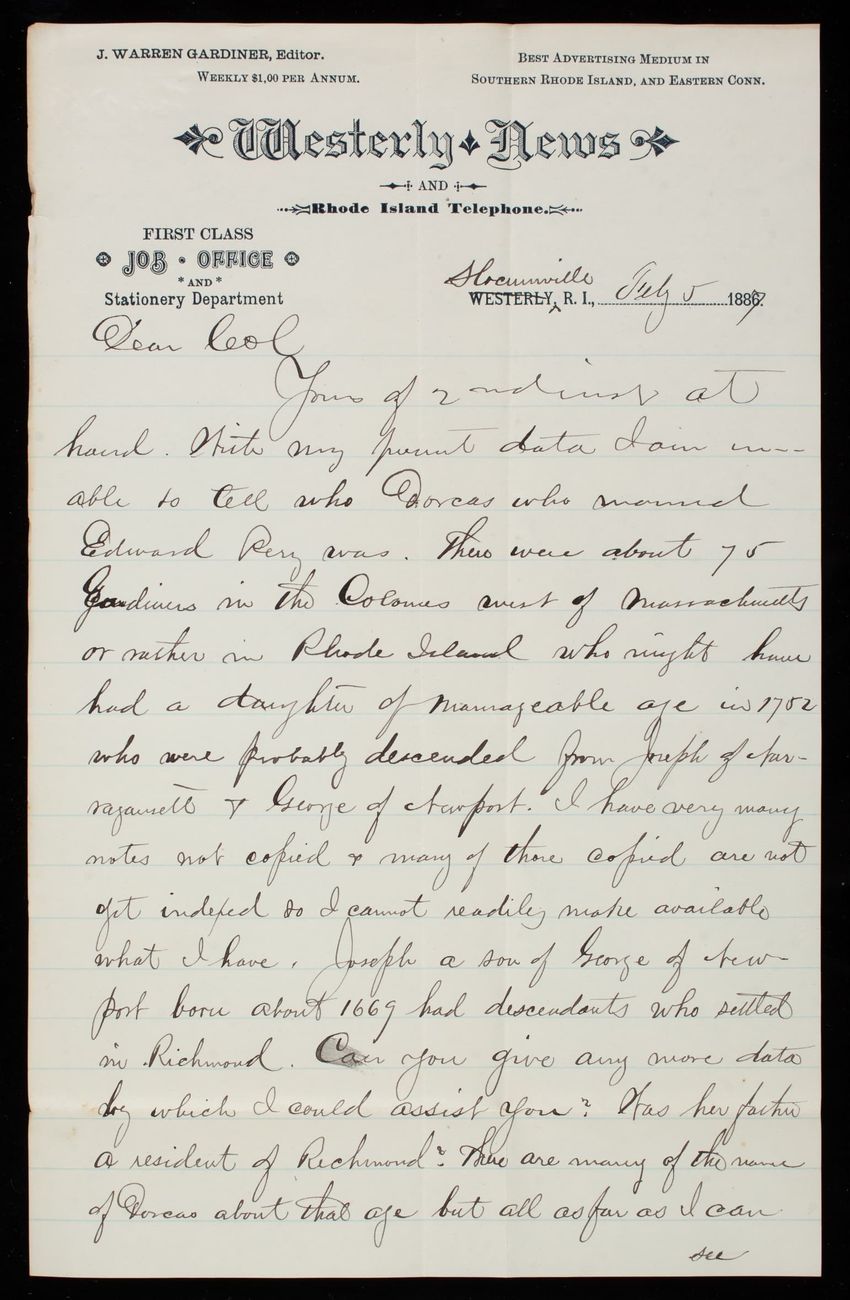 J. WARREN GARDINER, Editor.
WEEKLY $1,00 PER ANNUM.
BEST ADVERTISING MEDIUM IN
SOUTHERN RHODE ISLAND, AND EASTERN CONN.
Westerly News
AND
Rhode Island Telephone.
FIRST CLASS
JOB OFFICE
AND
Stationery Department
Slocumville
WESTERLY, R. I., July 5 1887
Dear Col
Yours of 2nd inst at
hand. With my present data I am un-
able to tell who Dorcas who married
Edward Pery was. There were about 75
Gardiners in the Colonies west of Massachusetts
or rather in Rhode Island who might have
had a daughter of marriageable age in 1752
who were probably descended from Joseph of Nar-
ragansett & George of Newport. I have very many
notes not copied & many of those copied are not
yet indexed so I cannot readily make available
what I have. Joseph a son of George of New-
port born about 1669 had descendants who settled
in Richmond. Can you give any more data
by which I could assist you? Was her father
a resident of Richmond? There are many of the name
of Dorcas about that age but all as far as I can
see